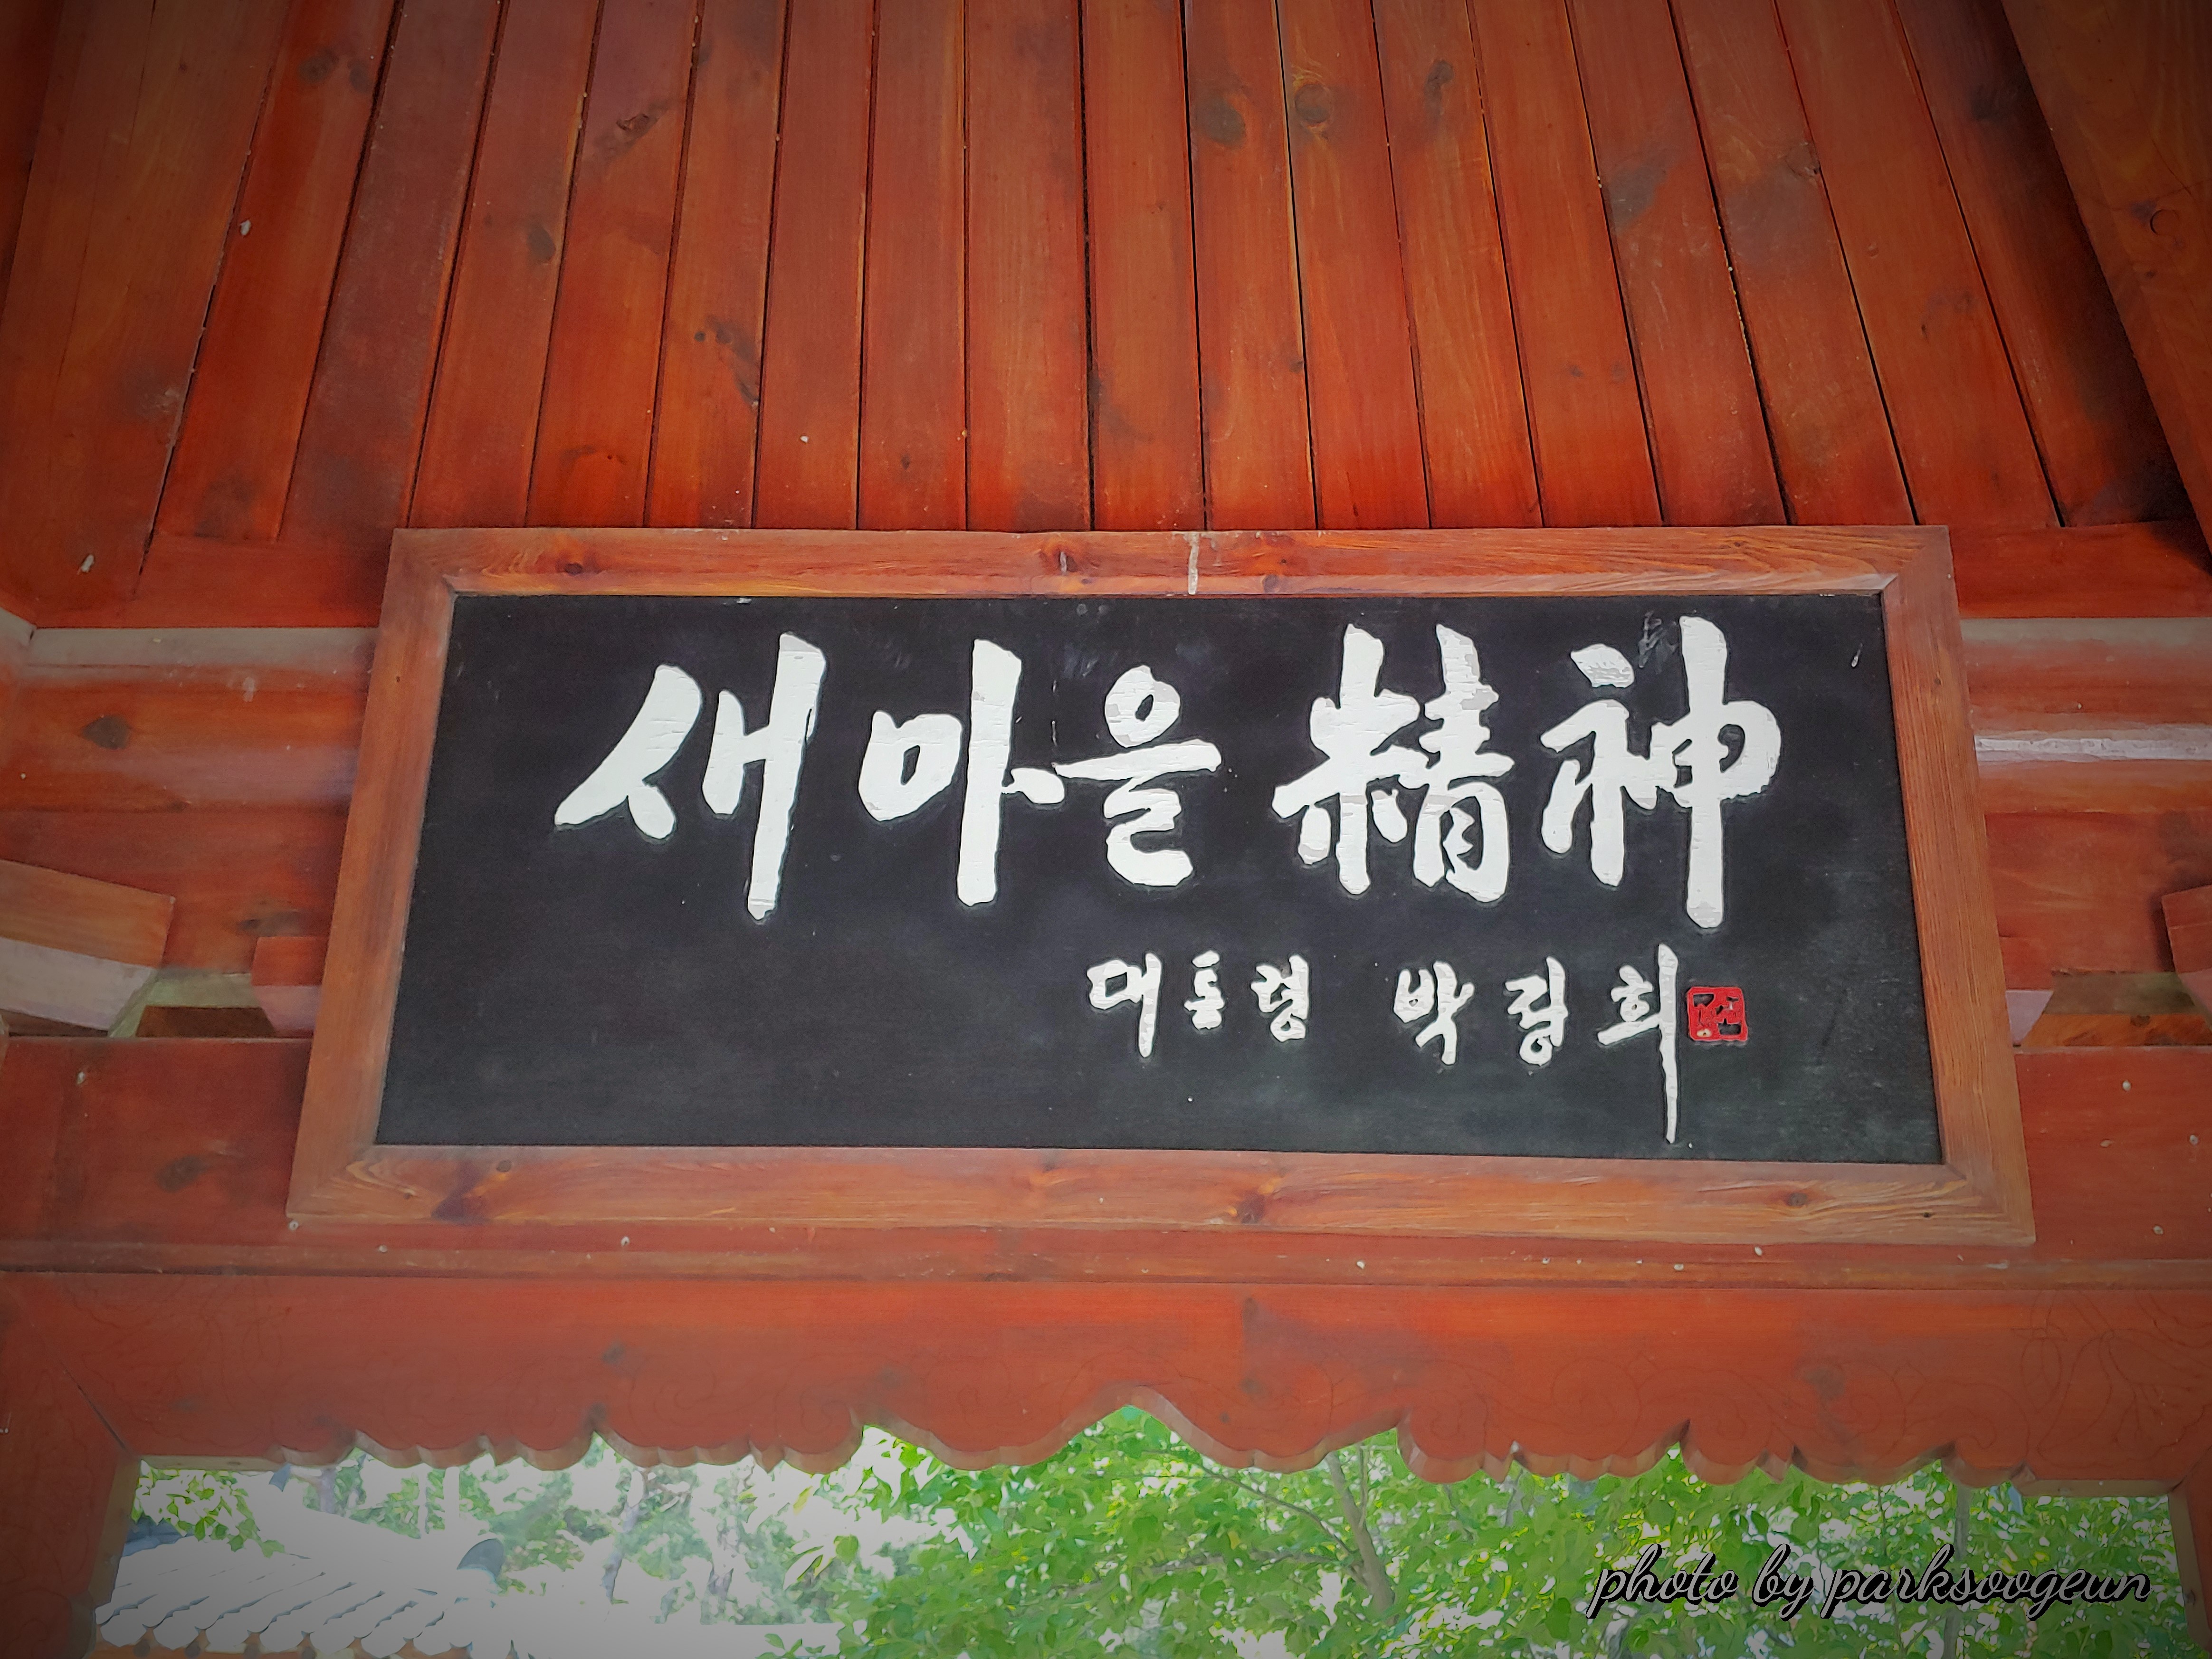 새마을 精神
대통령 박정희
photo by parksoogeun